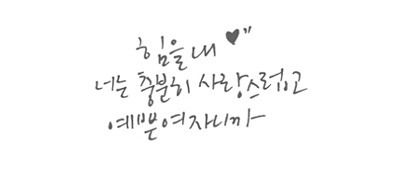 힘을 내 ♥"
너는 충분히 사랑스럽고
예쁜 여자니까